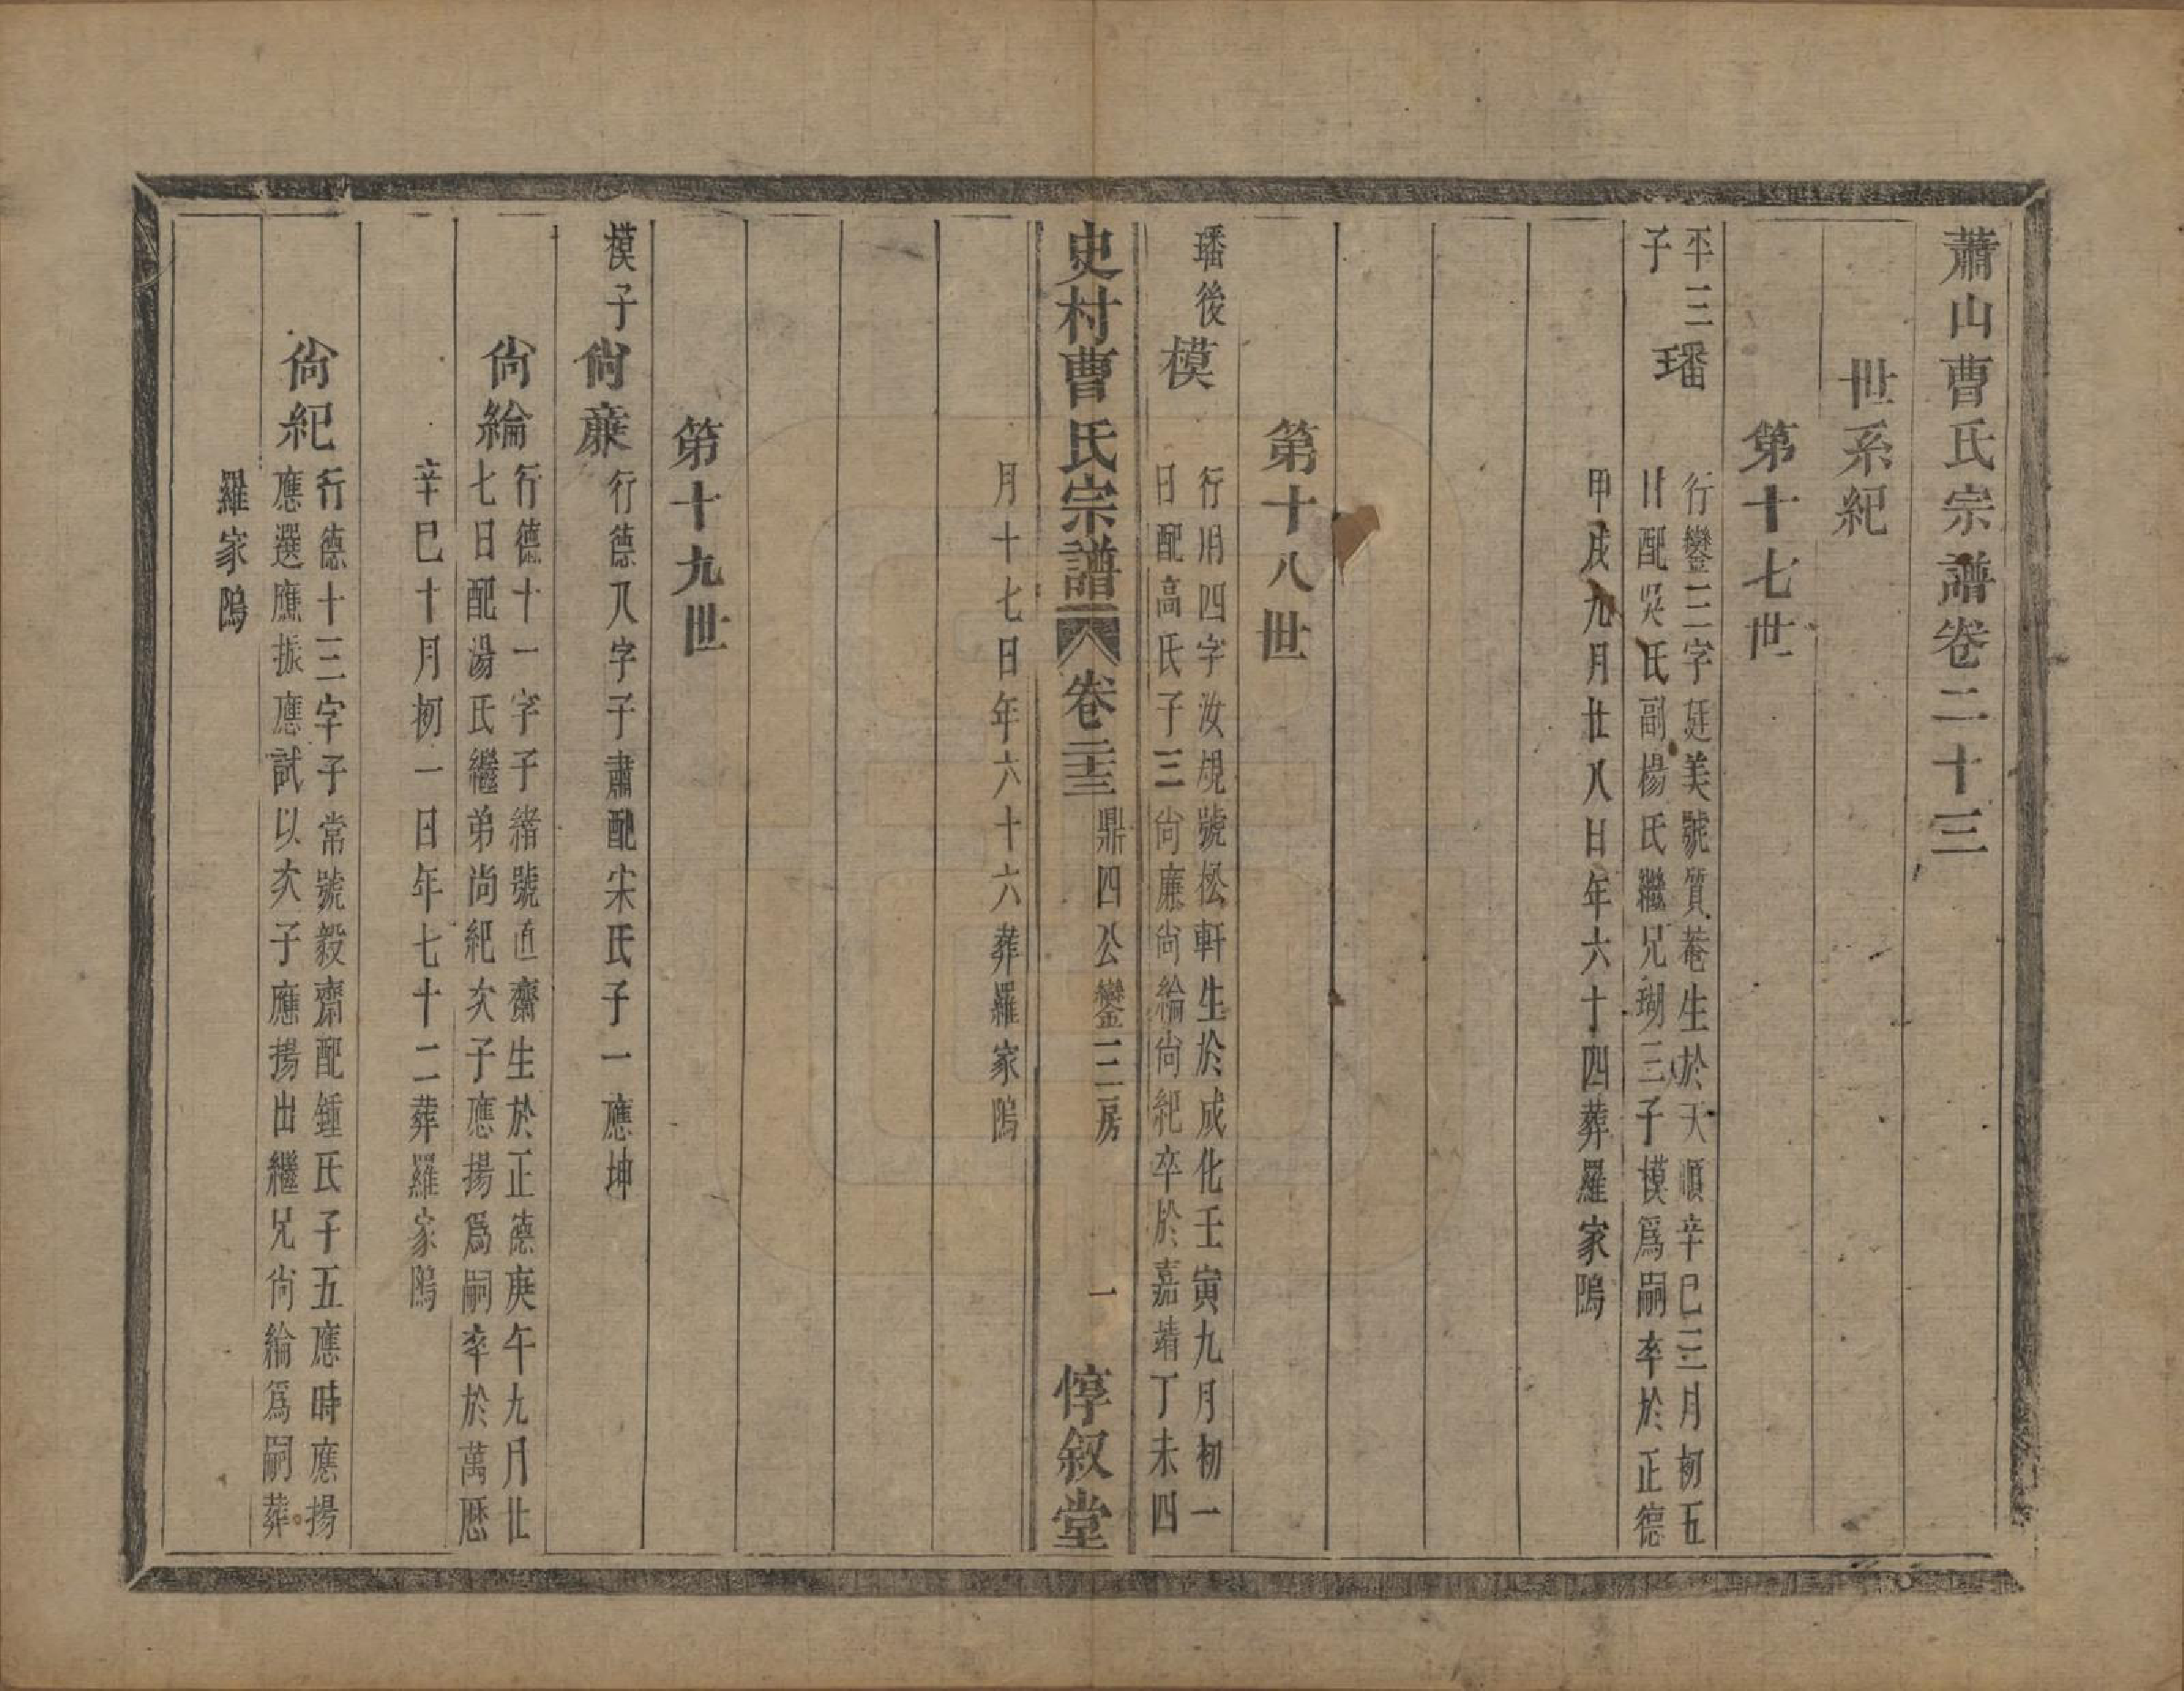 蕭山曹氏宗譜卷二十三
世系紀
第十七世
平三
子
璠
行鑾三字廷美號質菴生於天順辛巳三月初五
日配吳氏副楊氏繼兄瑚三子模爲嗣卒於正德
甲戌九月廿八日年六十四葬羅家隝
第十八世
璠後
模
行用四字汝規號松軒生於成化壬寅九月初一
日配高氏子三尙廉尙綸尙紀卒於嘉靖丁未四
史村曹氏宗譜
卷二十三
鼎四公鑾三房
一
惇叙堂
月十七日年六十六葬羅家隝
第十九世
模子
尙廉
行德八字子肅配宋氏子一應坤
尙綸
行德十一字子緒號直齋生於正德庚午九月廿
七日配湯氏繼弟尙紀次子應揚爲嗣卒於萬歷
辛巳十月初一日年七十二葬羅家隝
尙紀
行德十三字子常號毅齋配鍾氏子五應時應揚
應選應振應試以次子應揚出繼兄尙綸爲嗣葬
羅家隝